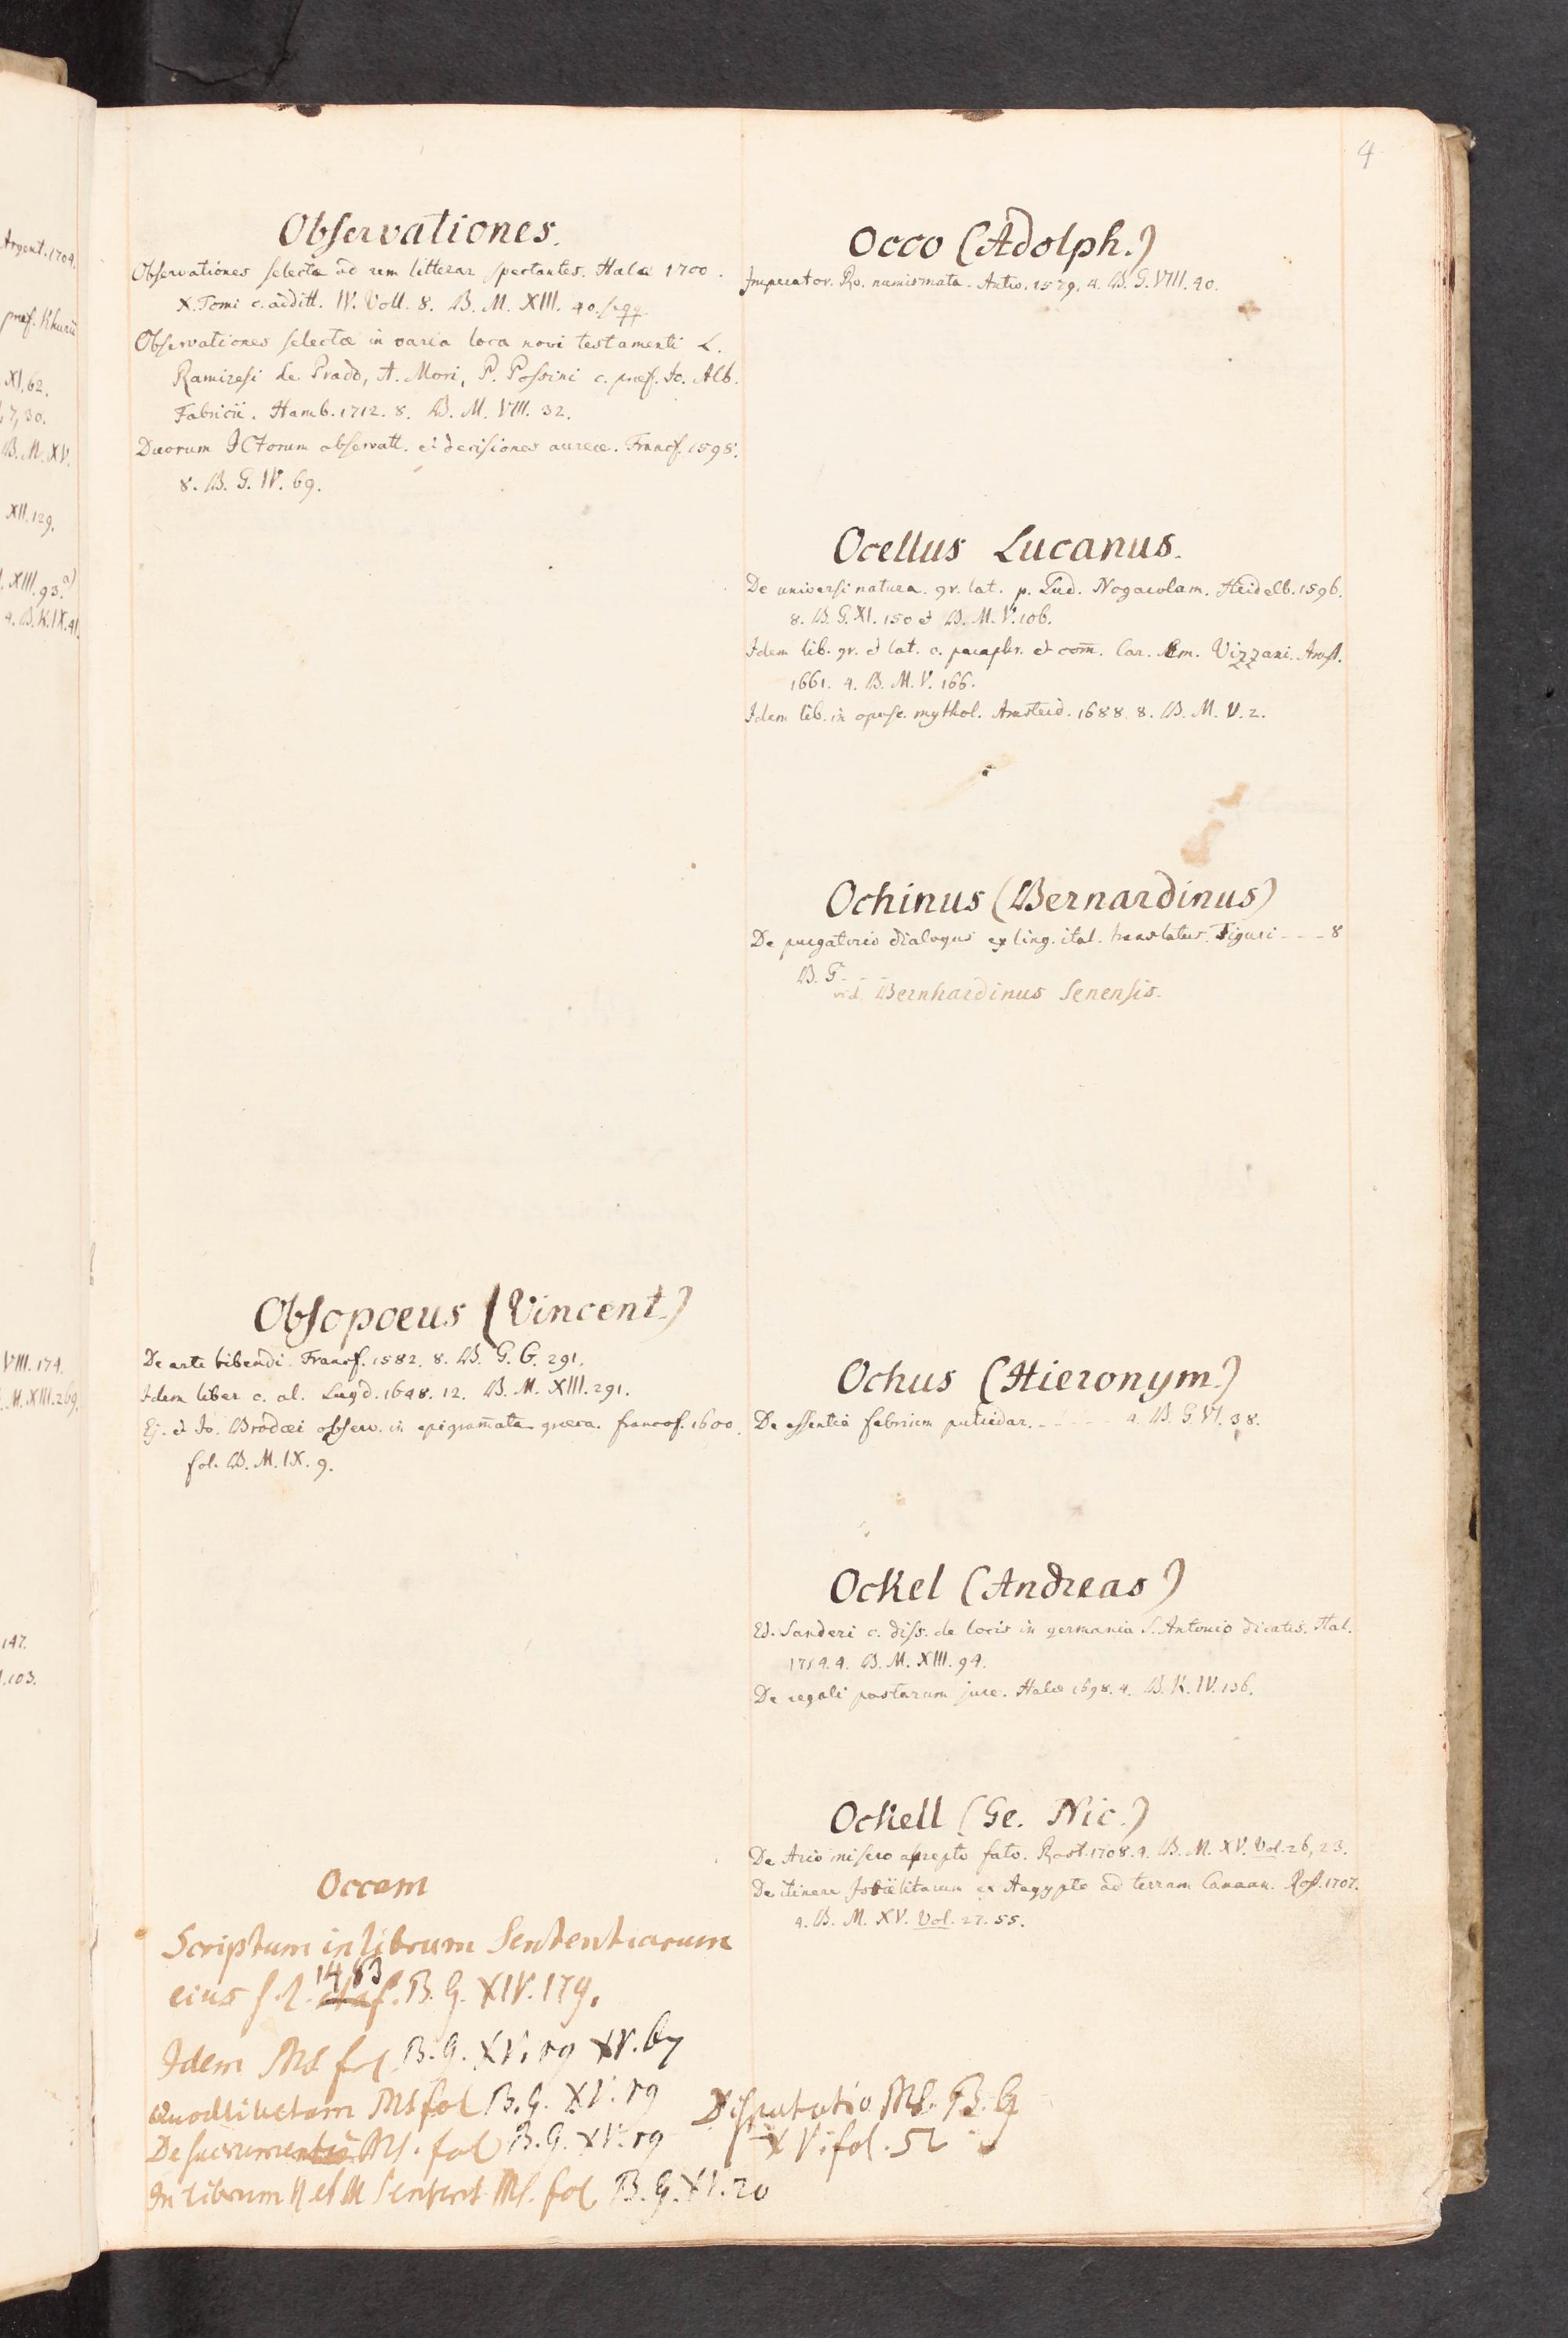 4
Observationes.
Observationes selectæ ad rem litterar spectantes. Halæ 1700.
X. Tomi c. additt. IV. Voll. 8. B. M. XIII. 40. seqq.
Observationes selectæ in varia loca novi testamenti L.
Ramiresi de Prado, A. Mori, P. Possini c. præf. Jo. Alb.
Fabricii. Hamb. 1712. 8. B. M. VIII. 32.
Duorum ICtorum observatt. et decisiones aureæ. Francf. 1595.
8. B. G. IV. 69.
Obsopoeus (Vincent.)
De arte bibendi. Francf. 1582. 8. B. G. G. 291.
Idem liber c. al. Lugd. 1648. 12. B. M. XIII. 291.
Ej. et Jo. Brodæi observ. in epigram̄ata græca. francof. 1600.
fol. B. M. IX. 9.
Occam
Scriptum in librum Sententiarum
eius s. l. 1483 f. B. G. XIV. 179.
Idem Ms fol. B. G. XV. 19 XV. 67
Quodlibetam Ms fol B. G. XV. 19
De sacramentis Ms. fol B. G. XV. 19
In librum II et III Sentent Ms. fol. B. G. XV. 20
Disputatio Ms. B. G
XV. fol. 52
Occo (Adolph.)
Imperator. Ro. numismata. Antw. 1579. 4. B. G. VIII. 40.
Ocellus Lucanus.
De universi natura. gr. lat. p. Lud. Nogarolam. Heidelb. 1596.
8. B. G. XI. 150 et B. M. V. 106.
Idem lib. gr. et lat. c. paraphr. et com̄. Car. Em. Vizzani. Amst.
1661. 4. B. M. V. 166.
Idem lib. in opusc. mythol. Amsteld. 1688. 8. B. M. V. 2.
Ochinus (Bernardinus)
De purgatorio dialogus ex ling. ital. translatus. Tiguri - - - 8
B. G. - -
vid. Bernhardinus Senensis.
Ochus (Hieronym.)
De essentia febrium putridar. - - - - 4. B. G. VI. 38.
Ockel (Andreas)
Ed. Sanderi c. diss. de locis in germania S. Antonio dicatis. Hal.
1714. 4. B. M. XIII. 94.
De regali postarum jure. Halæ 1698. 4. B. K. IV. 136.
Ockell (Ge. Nic.)
De Ario misero abrepto fato. Rost. 1708. 4. B. M. XV. Vol. 26, 23.
De itinere Israelitarum ex Aegypto ad terram Canaan. Ros. 1707.
4. B. M. XV. Vol. 27. 55.
Argent. 1704.
præf. Khunii
XI. 62.
7, 30.
B. M. XV.
XII. 129.
XIII. 93. a)
4. B. K. IX. 41.
VIII. 174.
M. XIII. 269.
147.
103.